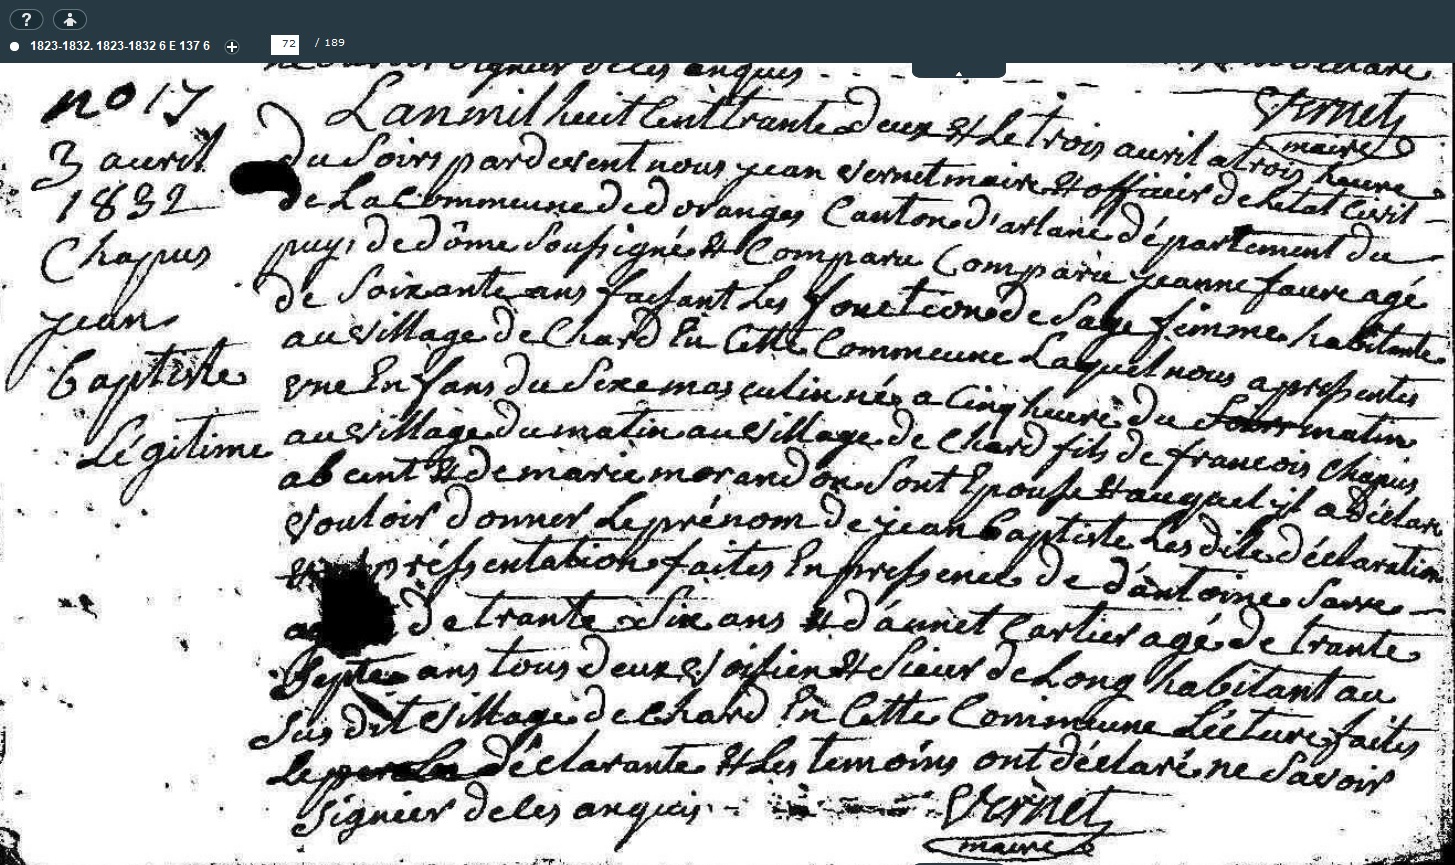 1823-1832. 1823-1832 6 E 137 6
72 / 189
signier de les enquis
Vernet
maire
no 17
3 avril
1832
Chapuis
jean
Baptiste
Légitime
Lan mil huit Cent trante deux et Le trois avril a trois heure
du Soirs pardevent nous jean Vernet maire et officier de Letat Civil
de La Commeune de doranges Canton d'arlanc département du
puy, de dôme Soussigné et Comparu Comparu jeanne faure agé
de Soixante ans faisant Les fonctions de Sage femme habitante
au village de Chard En Cette Commeune Laquel nous a pressentes
vne En fans du Sexe masculin né a Cinq heure du matin
au village du matin au village de Chard fils de francois Chapuis
abcent et de marie morandon Sont Epouse et auquel il a déclare
vouloir donner Le prénom de jean Baptiste Les dite déclaration
présentation faites En pressence de d'antoine Sarre
de trante Six ans et d'annet Cartier agé de trante
Septe ans tous deux voisien et Sieur de Long habitant au
Sus dit village de Chard En Cette Commeune Lécture faites
Le déclarante et Les temoins ont déclaré ne Savoir
Signier de les anquis
Vernet
maire